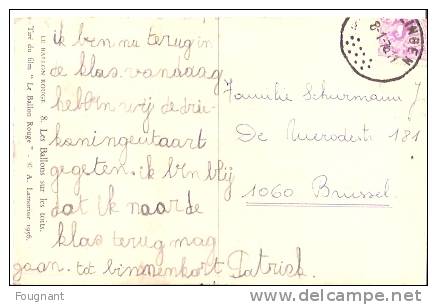 ik ben nu terug in
de klas. vandaag
hebben wij de drie-
koningentaart
gegeten. ik ben blij
dat ik naar de
klas terug mag
gaan. tot binnenkort Patrick
Familie Schurmann J
De Merodestr 181
1060 Brussel
LE BALLON ROUGE 8. Les Ballons sur les toits.
Tiré du film " Le Ballon Rouge " - © A. Lamorisse 1956.
INGEN
Fougnant
delcampe.net